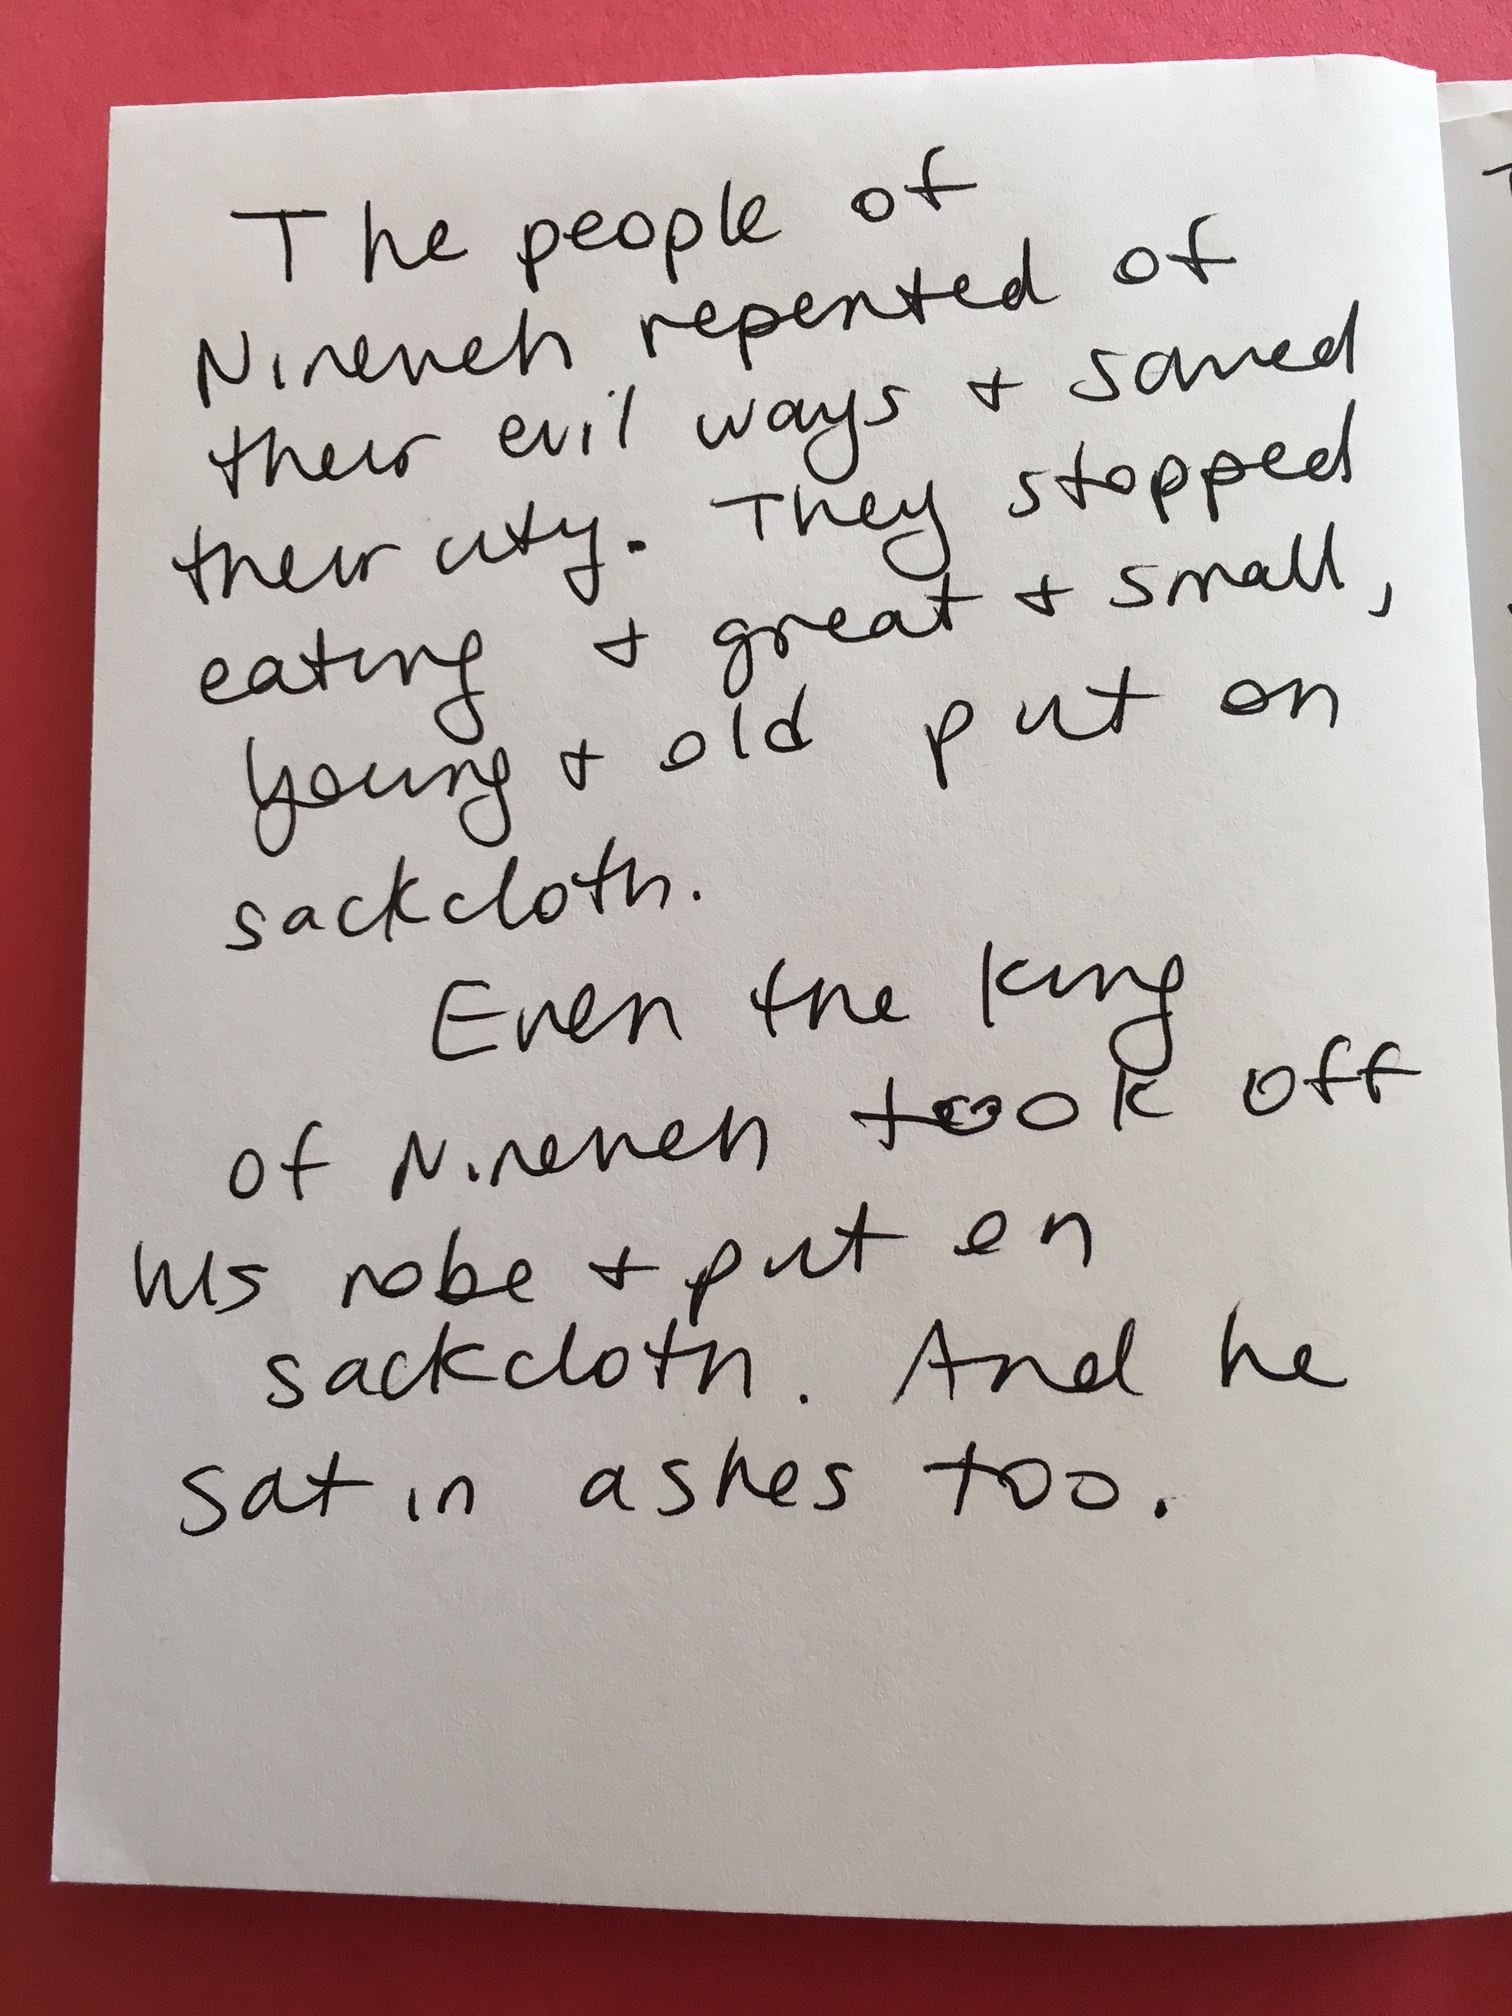 The people of
Nineveh repented of
their evil ways + saved
their city. They stopped
eating + great + small,
young + old put on
sackcloth.
Even the king
of Nineveh took off
his robe + put on
sackcloth. And he
sat in ashes too.